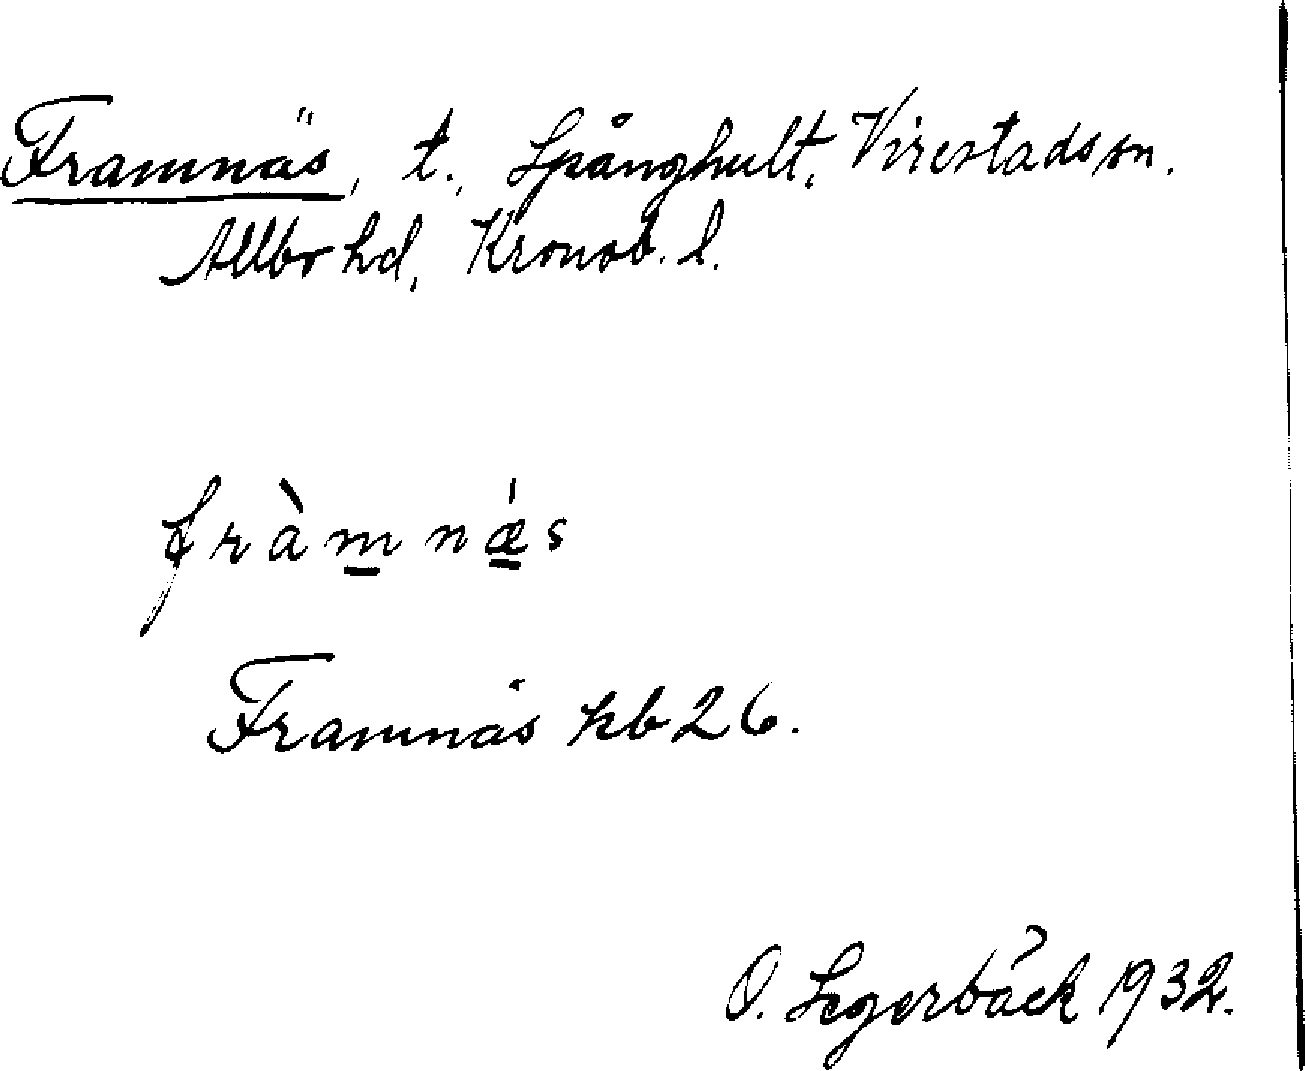 Framnäs, t., Spånghult, Virestads sn.
Allbo hd, Kronob. l.
fràmnǽs
Framnäs kb 26.
O. Segerbäck 1932.